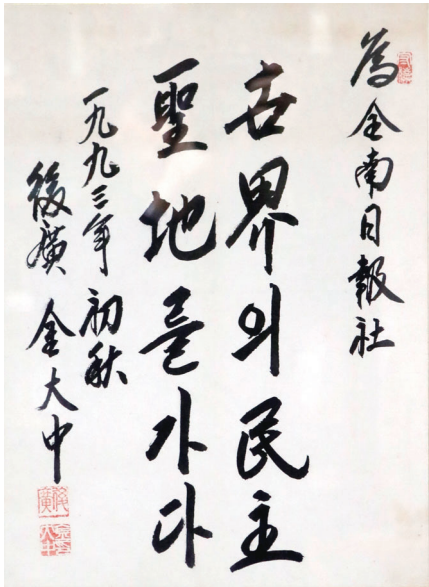 為全南日報社
世界의民主
聖地를가다
一九九三年 初秋
後廣 金大中
後廣